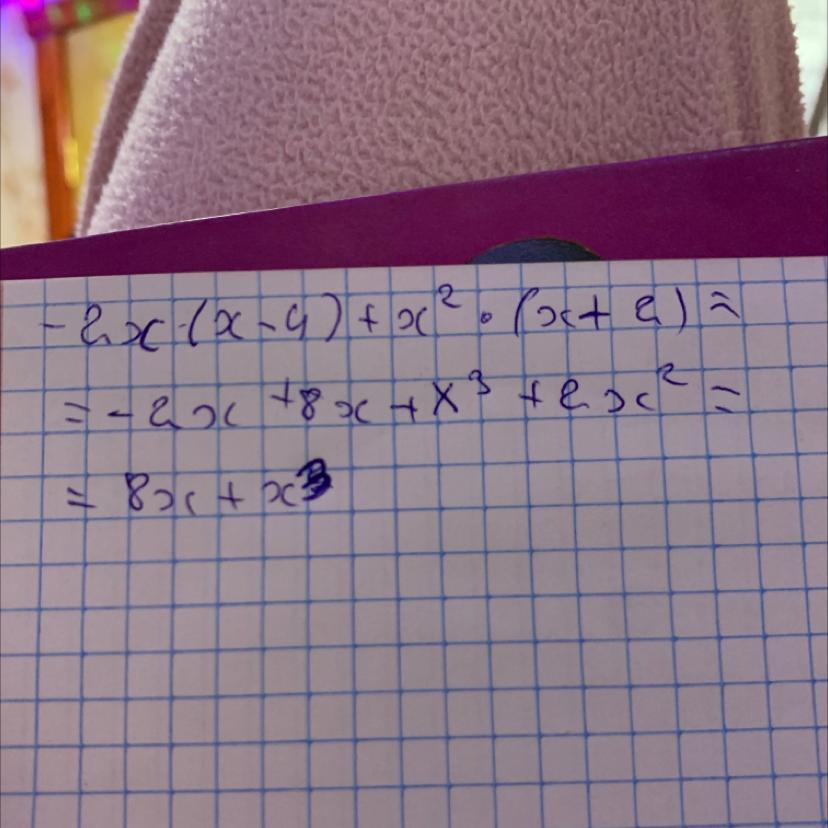 -2x·(x-4)+x²·(x+2)=
=-2x+8x+x³+2x²=
=8x+x³